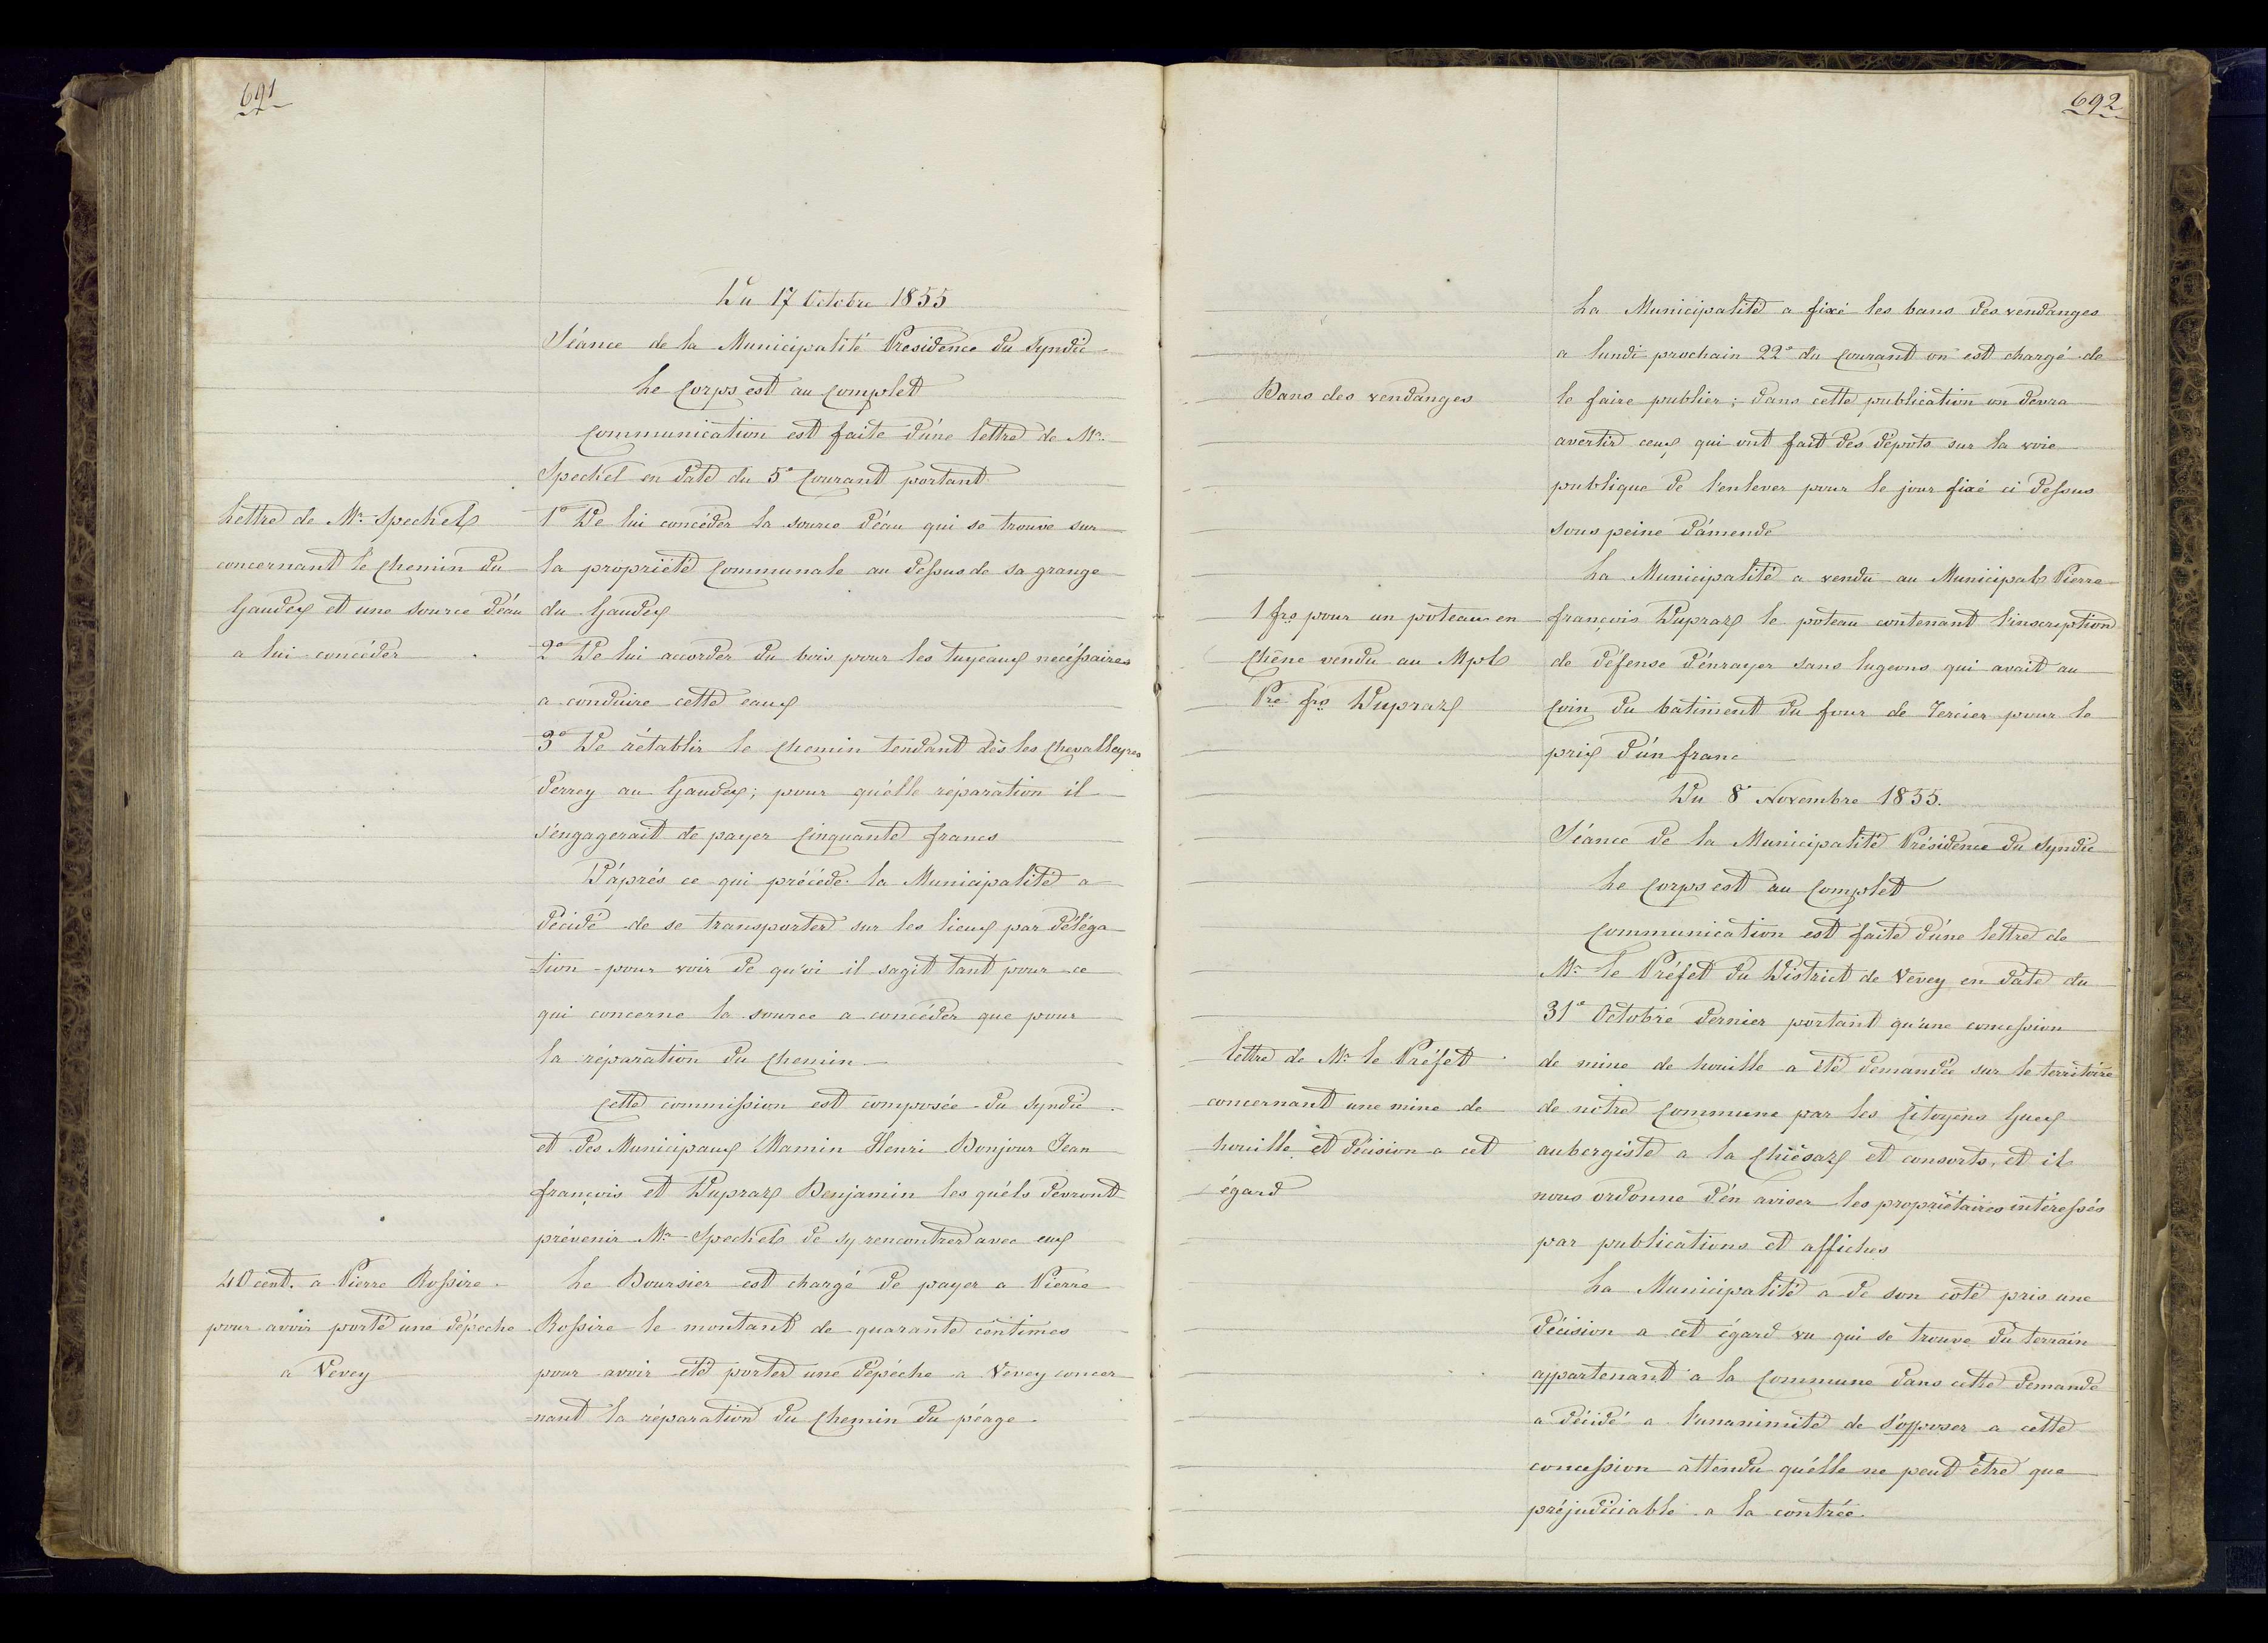 691
Du 17 Octobre 1855
Séance de la Municipalité Presidence du Syndic
Le Corps est au Complet
Communication est faite d'une lettre de Mr.
Spechel en date du 5e Courant portant
Lettre de Mr. Spechel
concernant le Chemin du
Gaudex et une source d'éau
a lui concéder
1o De lui concéder la source d'éau qui se trouve sur
la propriété Communale au dessus de sa grange
du Gaudex
2o De lui accorder du bois pour les tuyeaux necéssaires
a conduire cette eaux
3o De rétablir le Chemin tendant dès les Chevalleyres
derrey au Gaudex; pour qu'élle réparation il
s'engagerait de payer Cinquante francs
D'áprés ce qui précéde la Municipalité a
décidé de se transporter sur les lieux par déléga
tion pour voir de qu'oi il sagit tant pour ce
qui concerne la source a concéder que pour
la réparation du Chemin
Cette commission est composée du Syndic
et des Municipaux Mamin Henri Bonjour Jean
françois et Dupraz Benjamin les quéls devront
prévenir Mr. Spechel de sy rencontrer avec eux
40 cent. a Pierre Rossire
pour avoir porté une dépeche
a Vevey
Le Boursier est chargé de payer a Pierre
Rossire le montant de quarante centimes
pour avoir été porter une dépéche a Vevey concer
=nant la réparation du Chemin du péage
692
La Municipalité a fixé les bans des vendanges
a lundi prochain 22e du Courant on est chargé de
Bans des vendanges
le faire publier; dans cette publication on devra
avertir ceux qui ont fait des dépots sur la voie
publique de l'enlever pour le jour fixé ci dessus
sous peine d'ámende
La Municipalité a vendu au Municipal Pierre
1 frs pour un poteau en
Chêne vendu au Mpl
Pre frs Dupraz
françois Dupraz le poteau contenant l'inscription
de défense d'énrayer sans lugeons qui avait au
Coin du batiment du four de Tercier pour le
prix d'ún franc
Du 8e Novembre 1855.
Séance de la Municipalité Présidence du Syndic
Le Corps est au Complet
Communication est faite d'úne lettre de
Mr. le Préfet du District de Vevey en date du
31e Octobre dernier portant qu'une concession
lettre de Mr. le Préfet
concernant une mine de
houille et décision a cet
égard
de mine de houille a été demandée sur le territoire
de nôtre Commune par les Citoyens Guex
aubergiste a la Chiésaz et consorts, et il
nous ordonne d'én aviser les propriétaires intéressés
par publications et affiches
La Municipalité a de son coté pris une
décision a cet égard vu qui se trouve du terrain
appartenant a la Commune dans cette demande
a décidé a l'unanimité de s'opposer a cette
concession attendu qu'élle ne peut être que
préjudiciable a la contrée.